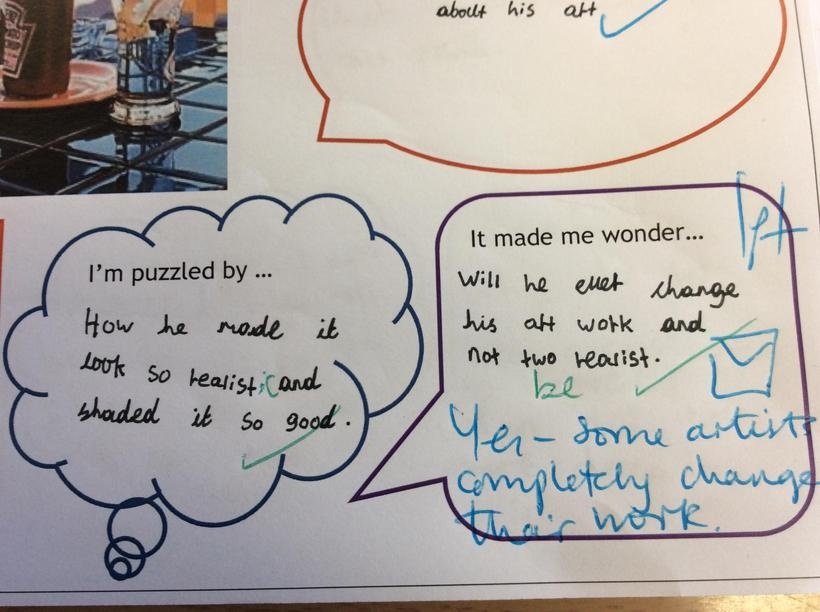 about his art
I'm puzzled by ...
How he made it
look so realistic and
shaded it so good.
It made me wonder...
Will he ever change
his art work and
not two realist.
be
Yes – some artists
completely change
their work.